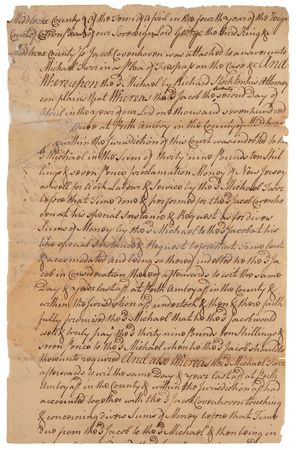 Middlesex County Of the Term of April in the fourth year of the Reign
of our Sovereign Lord George the third King &
Middlesex County Ss Jacob Covenhoven was attached to answer unto
Michael in a Plea of Trespass on the Case & And
Whereupon the sd Michael by Richard Stockton his Attorney
complains that Whereas the sd Jacob the second day of
April in the year of our Lord one thousand seven hundred
at Perth Amboy in the County of Middlesex
within the Jurisdiction of this Court was indebted to the
sd Michael in the Sum of thirty nine Pounds ten Shil
lings & seven pence proclamation Money of New Jersey
as well for Work Labour & Service by the sd Michael
before that Time done & performed for the sd Jacob Coven
hoven at his special Instance & Request as for divers
Sums of Money by the sd Michael to the sd Jacob at his
like special Instance & Request before that Time lent
& accomodated and being so thereof indebted he the sd Ja
cob in Consideration thereof afterwards to wit the same
Day & year last aforesd at Perth Amboy aforesd in the County &
within the Jurisdiction aforesd undertook & then & there faith
fully promised the sd Michael that he the sd Jacob would
well & truly pay the sd thirty nine Pounds ten Shillings &
seven pence to the sd Michael when he the sd Jacob should be
thereunto required And also Whereas the sd Michael
afterwards to wit the same day & year last aforesd at Perth
Amboy aforesd in the County & within the Jurisdiction aforesd had
accounted together with the sd Jacob Covenhoven touching
& concerning divers Sums of Money before that Time
due from the sd Jacob to the sd Michael & then being in